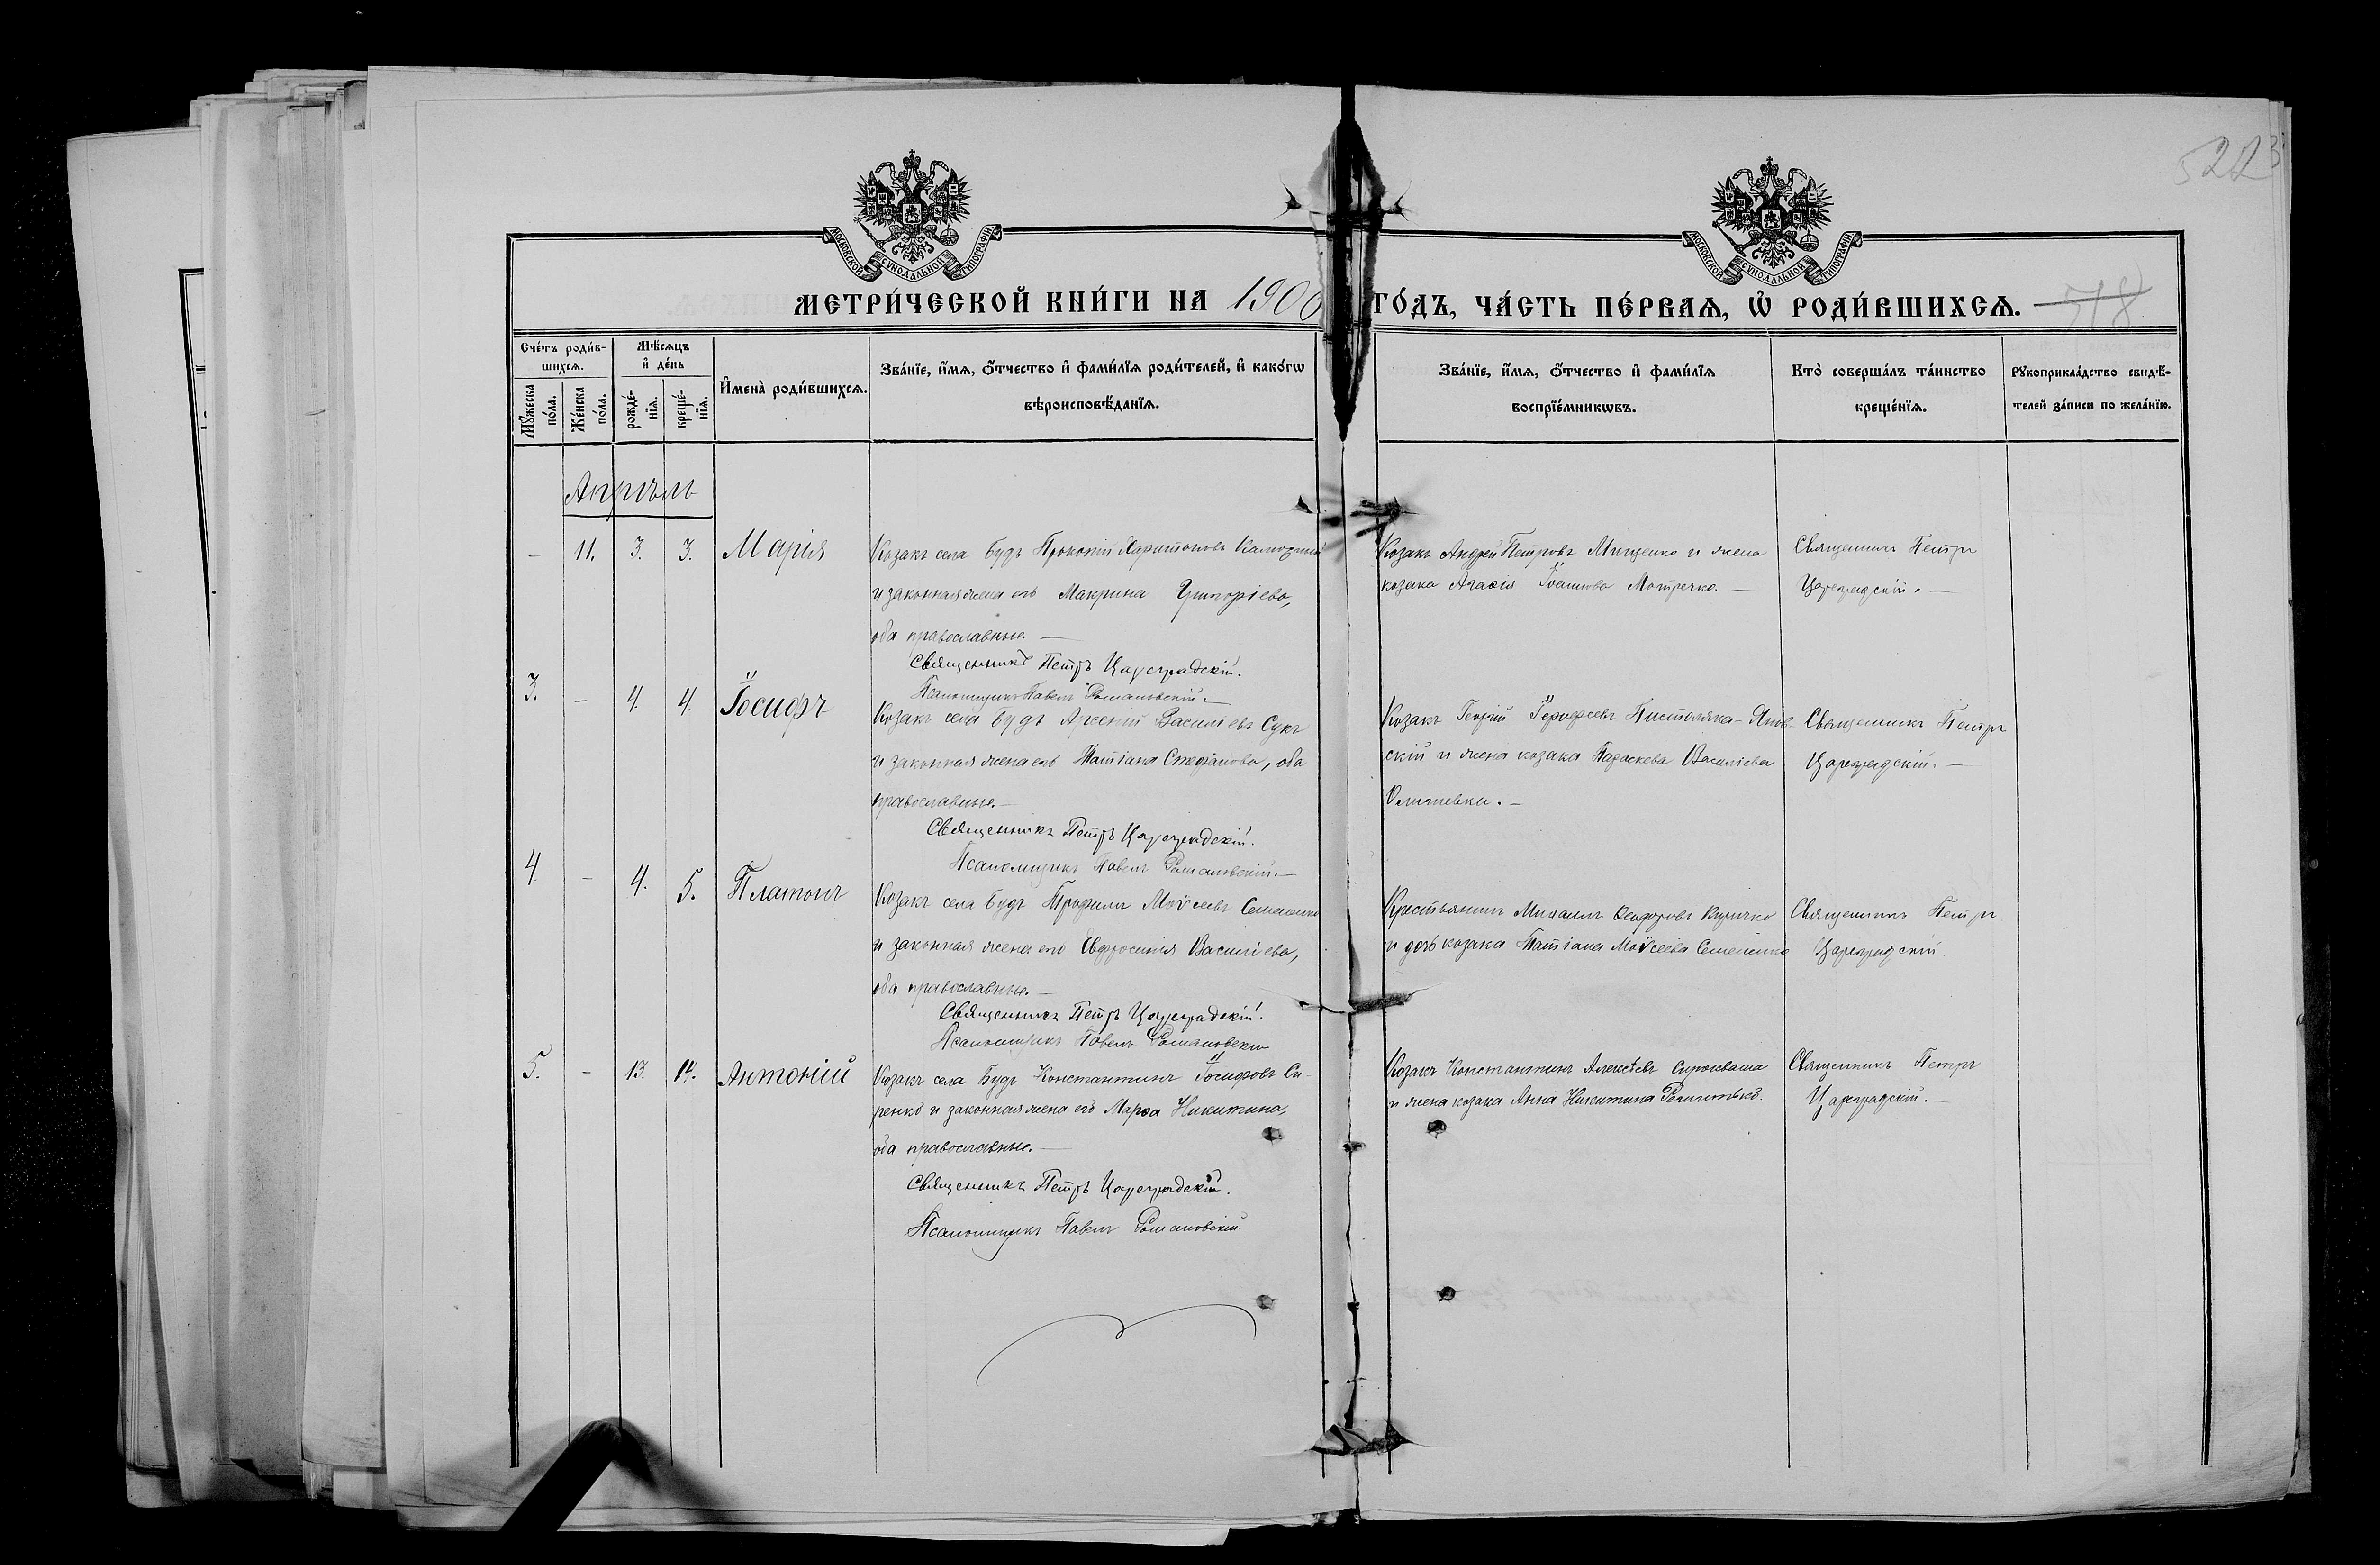 5223
МОСКОВСКОЙ СѴНОДАЛЬНОЙ ТИПОГРАФІИ
МОСКОВСКОЙ СѴНОДАЛЬНОЙ ТИПОГРАФІИ
МЕТРИ́ЧЕСКОЙ КНИ́ГИ НА 1900 ГО́ДЪ, ЧА́СТЬ ПЕ́РВАѦ, Ѡ҆ РОДИ́ВШИХСѦ. 518
Сче́тъ роди́в-
шихсѧ.
Мꙋ́жеска
по́ла.
Же́нска
по́ла.
Мѣ́сѧцъ
и҆ де́нь
рожде́-
нїѧ.
креще́-
нїѧ.
И҆мена̀ роди́вшихсѧ.
Зва́нїе, и҆́мѧ, ѻ҆́тчество и҆ фами́лїѧ роди́телей, и҆ како́гѡ
вѣроисповѣ́данїѧ.
Зва́нїе, и҆́мѧ, ѻ҆́тчество и҆ фами́лїѧ
воспрїе́мникѡвъ.
Кто̀ соверша́лъ та́инство
креще́нїѧ.
Рꙋкоприкла́дство свидѣ́-
телей за́писи по жела́нїю.
Апрѣль
— 11. 3. 3. Марія
Козакъ села Будъ Прокопій Харитоновъ
и законная жена его Макрина Григоріева,
оба православные. —
Священникъ Петръ Цареградскій.
Псаломщикъ Павелъ Романовскій. —
Козакъ Андрей Петровъ Мищенко и жена
козака Агаѳія Іоаннова Мотречко. —
Священникъ Петръ
Цареградскій. —
3. — 4. 4. Іосифъ
Козакъ села Будъ Арсеній Василіевъ Сукъ
и законная жена его Татіана Стефанова, оба
православные. —
Священникъ Петръ Цареградскій.
Псаломщикъ Павелъ Романовскій. —
Козакъ Георгій Пистоляка-Янов-
скій и жена козака Параскева Василіева
Священникъ Петръ
Цареградскій. —
4 — 4. 5. Платонъ
Козакъ села Будъ Трофимъ Моѵсеевъ Семененко
и законная жена его Евфросинія Василіева,
оба православные. —
Священникъ Петръ Цареградскій.
Псаломщикъ Павелъ Романовскій
Крестьянинъ Михаилъ Ѳеодоровъ Киричко
и дочь козака Татіана Моѵсеева Семененко
Священникъ Петръ
Цареградскій
5. — 13. 14. Антоній
Козакъ села Будъ Константинъ Іосифовъ Си-
ренко и законная жена его Марѳа Никитина,
оба православные. —
Священникъ Петръ Цареградскій.
Псаломщикъ Павелъ Романовскій.
Козакъ Константинъ Алексѣевъ Сыроваша
и жена козака Анна Никитина
Священникъ Петръ
Цареградскій. —